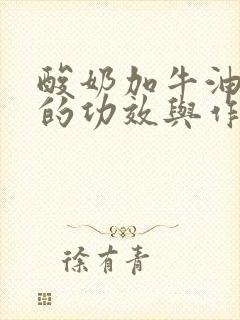 酸奶加牛油
的功效與作
徐有青